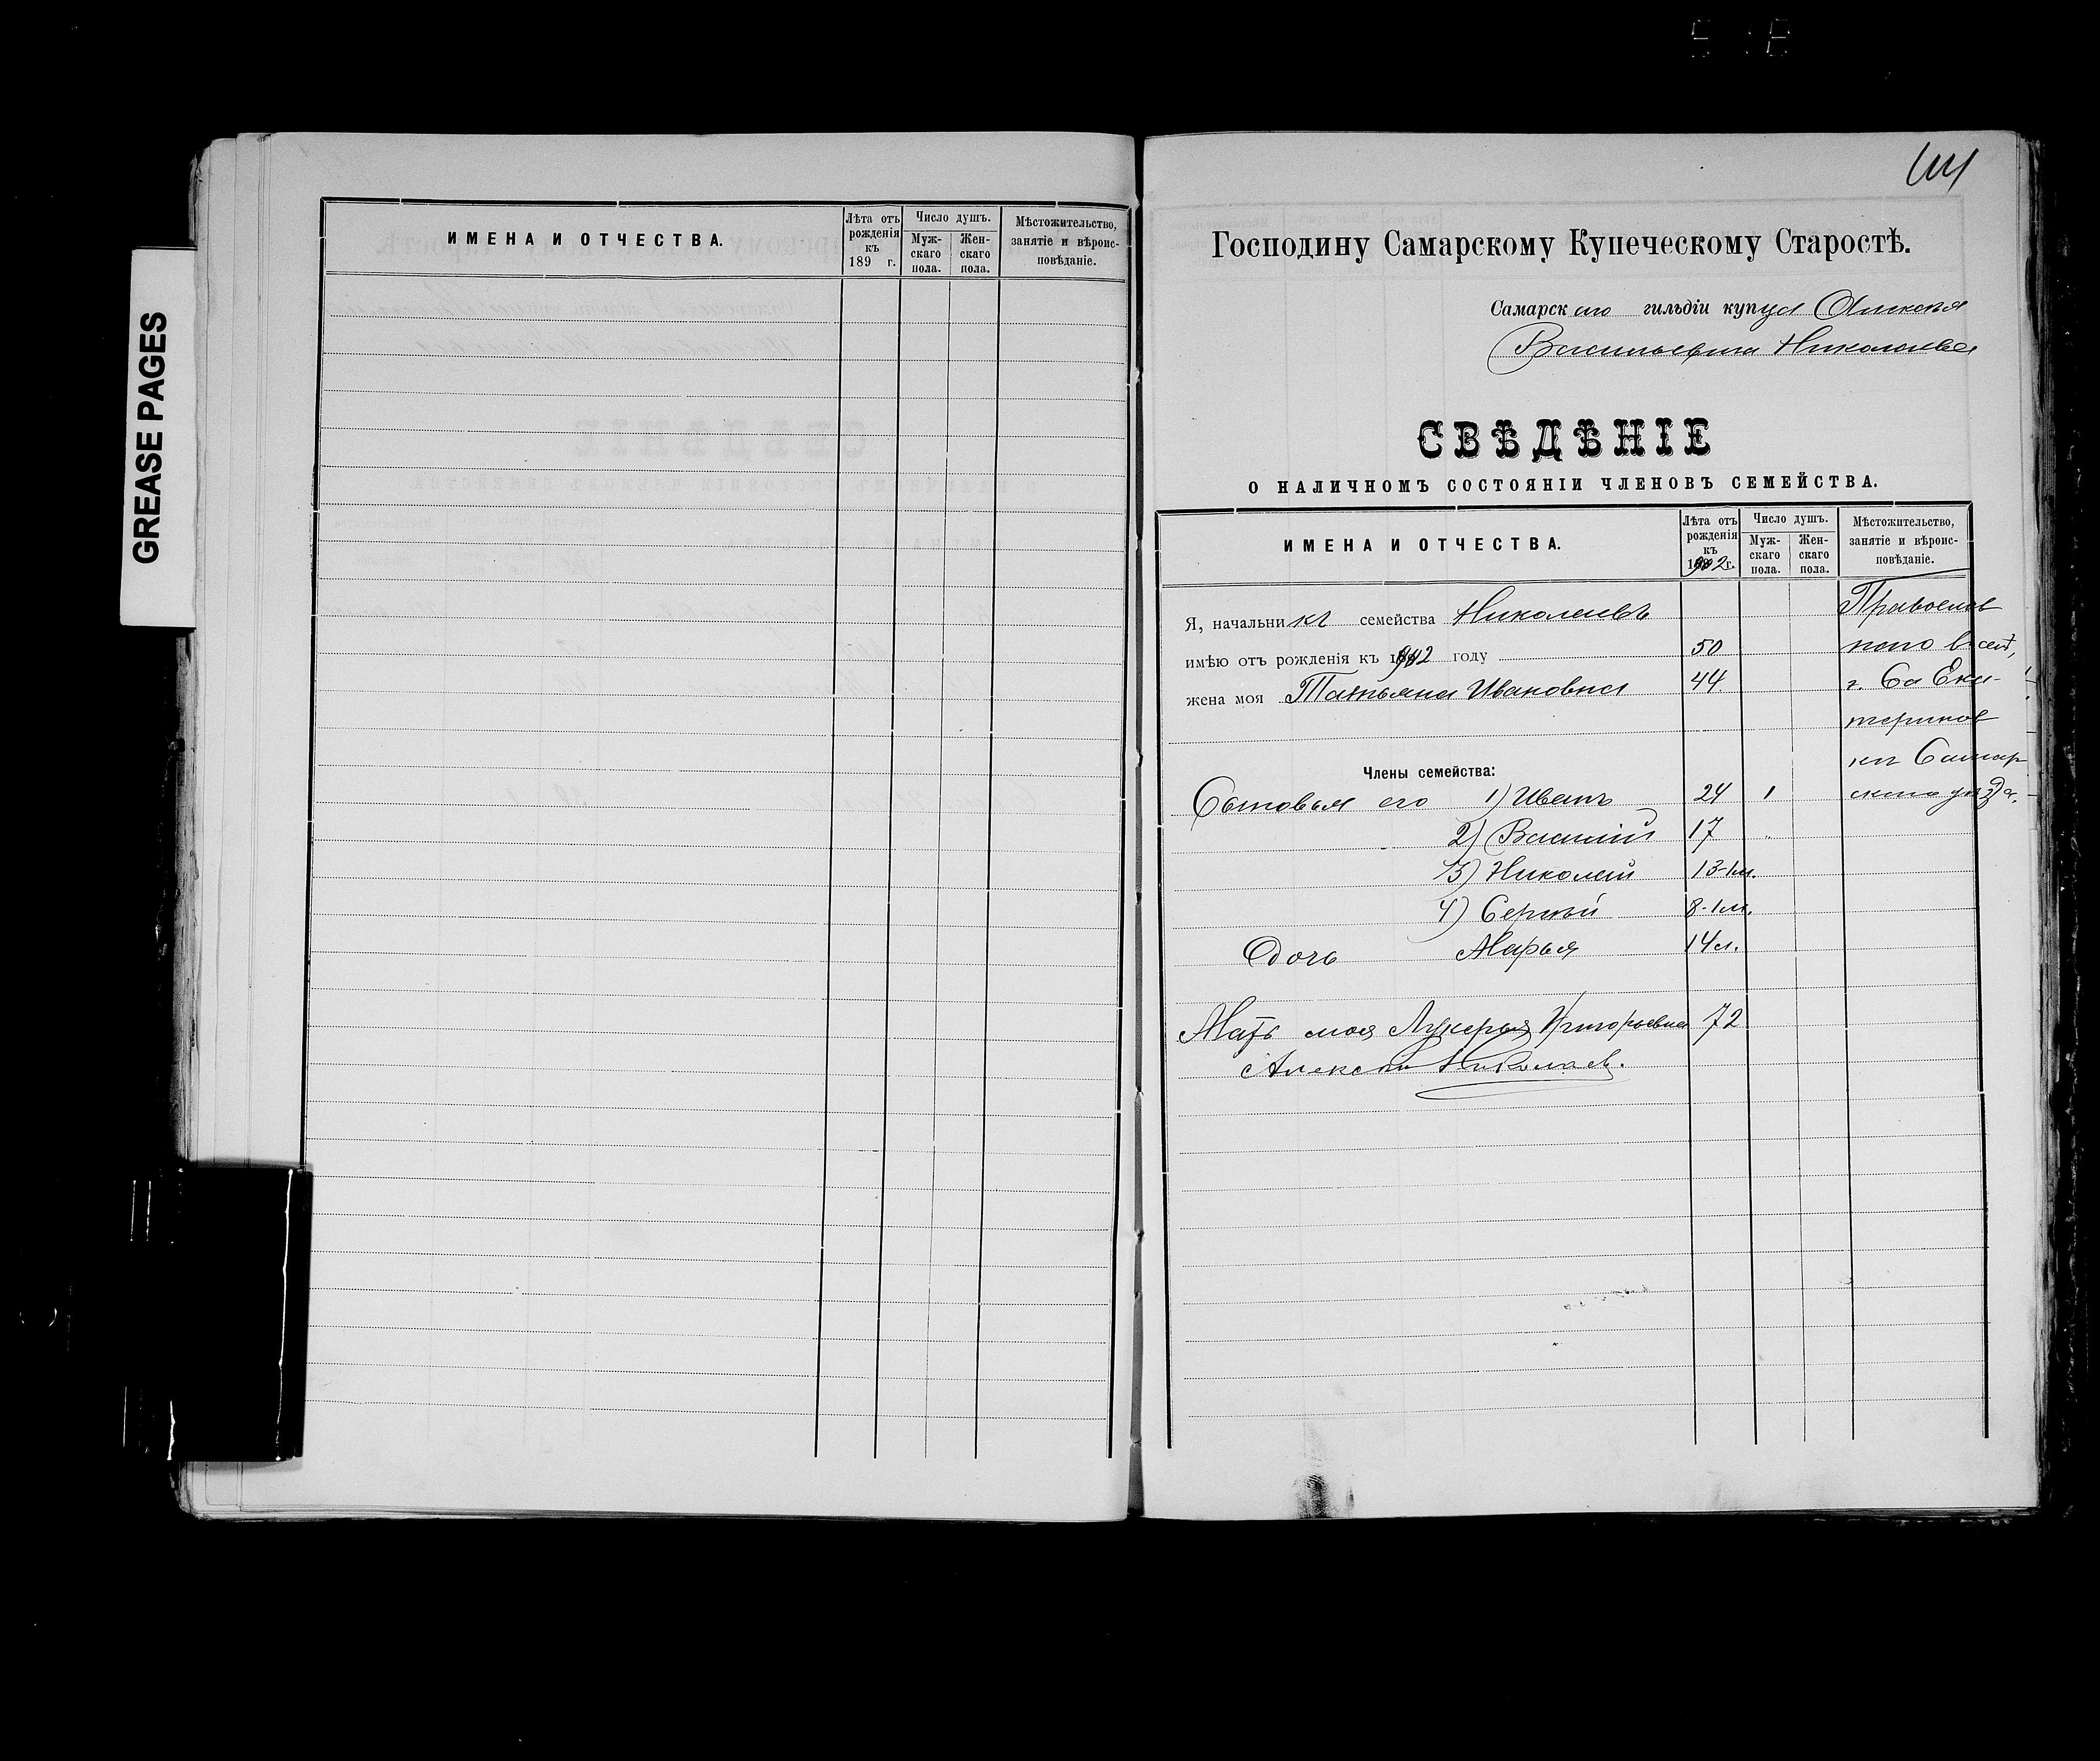 GREASE PAGES
ИМЕНА И ОТЧЕСТВА.
Лѣта отъ рожденія къ 189 г.
Число душъ.
Муж-скаго пола.
Жен-скаго пола.
Мѣстожительство, занятіе и вѣроис-повѣданіе.
Господину Самарскому Купеческому Старостѣ.
Самарскаго гильдіи купца Алексѣя
Васильевича Николаева
СВѢДѢНІЕ
О НАЛИЧНОМЪ СОСТОЯНІИ ЧЛЕНОВЪ СЕМЕЙСТВА.
ИМЕНА И ОТЧЕСТВА.
Лѣта отъ рожденія къ 1902 г.
Число душъ.
Муж-скаго пола.
Жен-скаго пола.
Мѣстожительство, занятіе и вѣроис-повѣданіе.
Я, начальникъ семейства Николаевъ Православ
имѣю отъ рожденія къ 1902 году 50 наго
жена моя Татьяна Ивановна 44 Ека-
теринов
Члены семейства: Самар
Сыновья его 1) Иванъ 24 1 скаго уѣзда.
2) Василій 17 "
3) Николай 13-1м.
4) Сергѣй 8-1м.
Дочь Марья 14 л.
Мать моя Лукерья Григорьевна 72
Алексѣй Николаев.